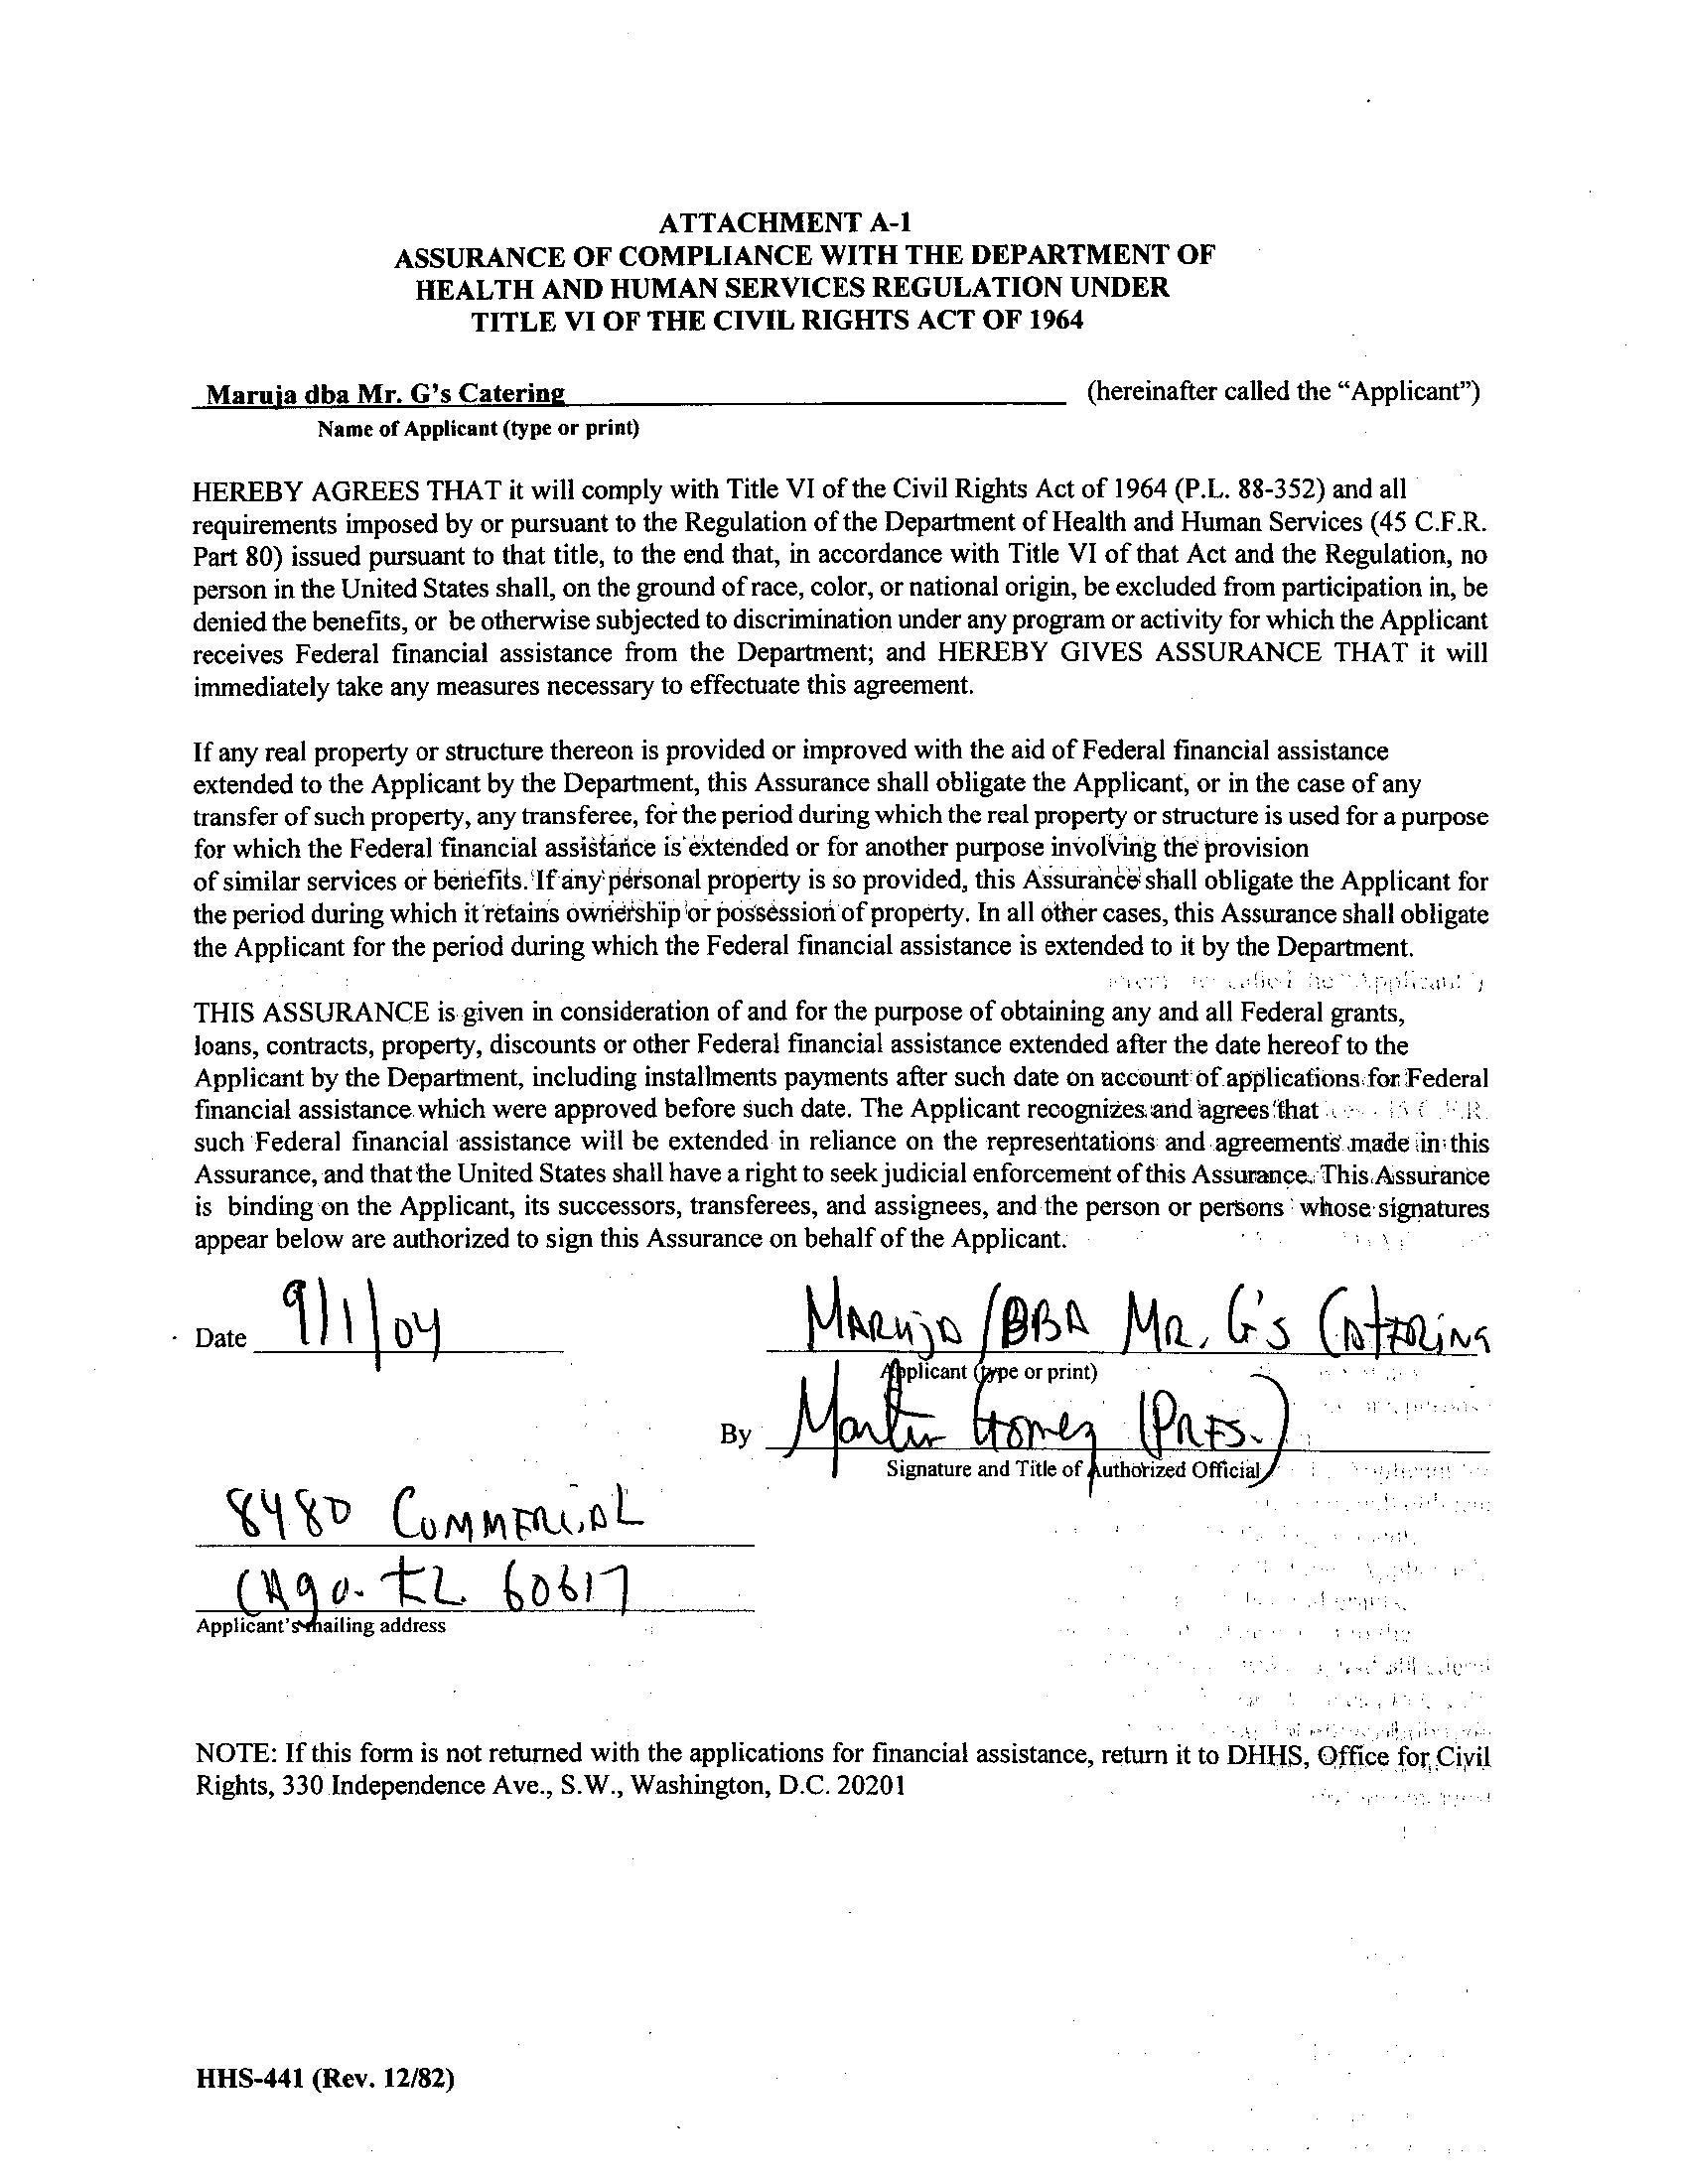 ATTACHMENT A-1
ASSURANCE OF COMPLIANCE WITH THE DEPARTMENT OF
HEALTH AND HUMAN SERVICES REGULATION UNDER
TITLE VI OF THE CIVIL RIGHTS ACT OF 1964
Maruja dba Mr. G's Catering (hereinafter called the “Applicant”)
Name of Applicant (type or print)
HEREBY AGREES THAT it will comply with Title VI of the Civil Rights Act of 1964 (P.L. 88-352) and all
requirements imposed by or pursuant to the Regulation of the Department of Health and Human Services (45 C.F.R.
Part 80) issued pursuant to that title, to the end that, in accordance with Title VI of that Act and the Regulation, no
person in the United States shall, on the ground of race, color, or national origin, be excluded from participation in, be
denied the benefits, or be otherwise subjected to discrimination under any program or activity for which the Applicant
receives Federal financial assistance from the Department; and HEREBY GIVES ASSURANCE THAT it will
immediately take any measures necessary to effectuate this agreement.
If any real property or structure thereon is provided or improved with the aid of Federal financial assistance
extended to the Applicant by the Department, this Assurance shall obligate the Applicant, or in the case of any
transfer of such property, any transferee, for the period during which the real property or structure is used for a purpose
for which the Federal financial assistance is extended or for another purpose involving the provision
of similar services or benefits. If any personal property is so provided, this Assurance shall obligate the Applicant for
the period during which it retains ownership or possession of property. In all other cases, this Assurance shall obligate
the Applicant for the period during which the Federal financial assistance is extended to it by the Department.
THIS ASSURANCE is given in consideration of and for the purpose of obtaining any and all Federal grants,
loans, contracts, property, discounts or other Federal financial assistance extended after the date hereof to the
Applicant by the Department, including installments payments after such date on account of applications for Federal
financial assistance which were approved before such date. The Applicant recognizes and agrees that
such Federal financial assistance will be extended in reliance on the representations and agreements made in this
Assurance, and that the United States shall have a right to seek judicial enforcement of this Assurance. This Assurance
is binding on the Applicant, its successors, transferees, and assignees, and the person or persons whose signatures
appear below are authorized to sign this Assurance on behalf of the Applicant.
Date 9/1/04 MARUJA /DBA MR. G's CATERING
Applicant (type or print)
By Martin Gomez (PRES.)
Signature and Title of Authorized Official
8480 COMMERCIAL
CHgo. IL. 60617
Applicant's mailing address
NOTE: If this form is not returned with the applications for financial assistance, return it to DHHS, Office for Civil
Rights, 330 Independence Ave., S.W., Washington, D.C. 20201
HHS-441 (Rev. 12/82)